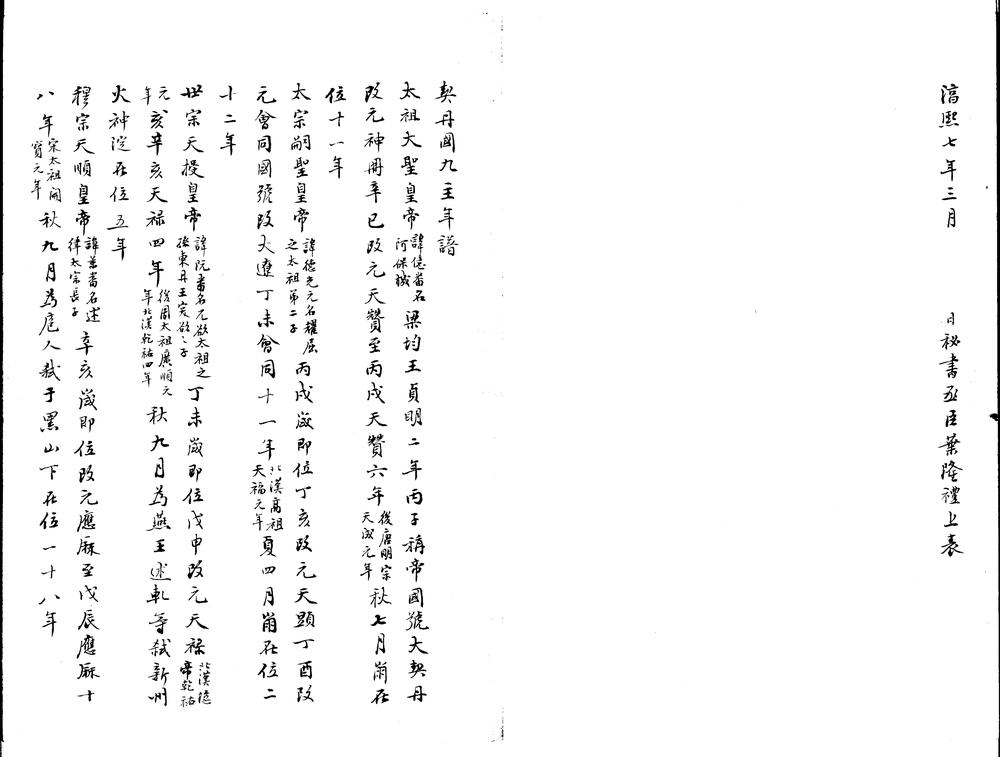 淳熙七年三月　日秘書丞臣葉隆禮上表
契丹國九主年譜
太祖大聖皇帝諱億番名阿保機梁均王貞明二年丙子稱帝國號大契丹
改元神冊辛巳改元天贊至丙戌天贊六年後唐明宗天成元年秋七月崩在
位十一年
太宗嗣聖皇帝諱德光元名耀屈之太祖第二子丙戌歲即位丁亥改元天顯丁酉改
元會同國號改大遼丁未會同十一年北漢高祖天福元年夏四月崩在位二
十二年
世宗天授皇帝諱阮番名兀欲太祖之孫東丹王突欲之子丁未歲即位戊申改元天祿北漢隱帝乾祐
元年亥辛亥天祿四年後周太祖廣順元年北漢乾祐四年秋九月為燕王述軋等弒新州
火神淀在位五年
穆宗天順皇帝諱番名述律太宗長子辛亥歲即位改元應厤至戊辰應厤十
八年宋太祖開寶元年秋九月為庖人弒于黑山下在位一十八年